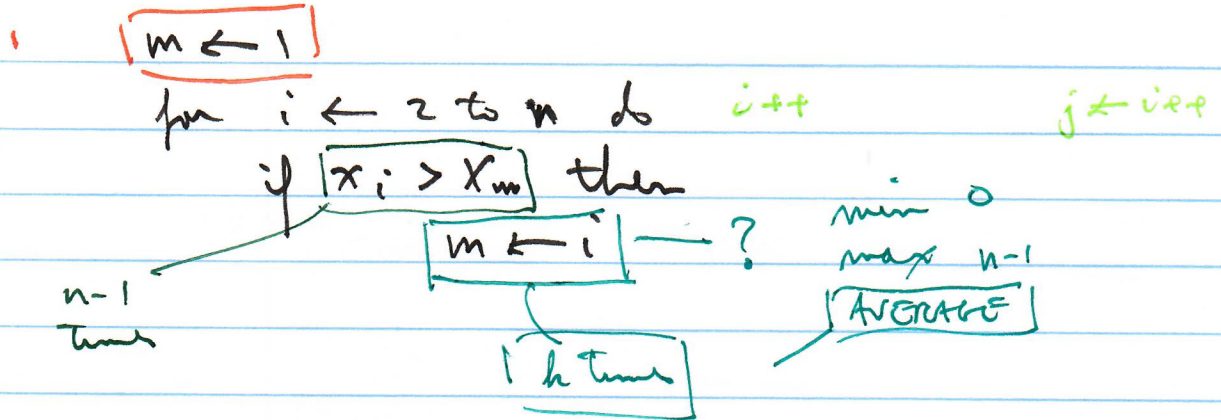 1 m ← 1
for i ← 2 to n do i++ j ← i++
if x i > X m then
min 0
m ← i — ? max n-1
n-1 AVERAGE
times
k times